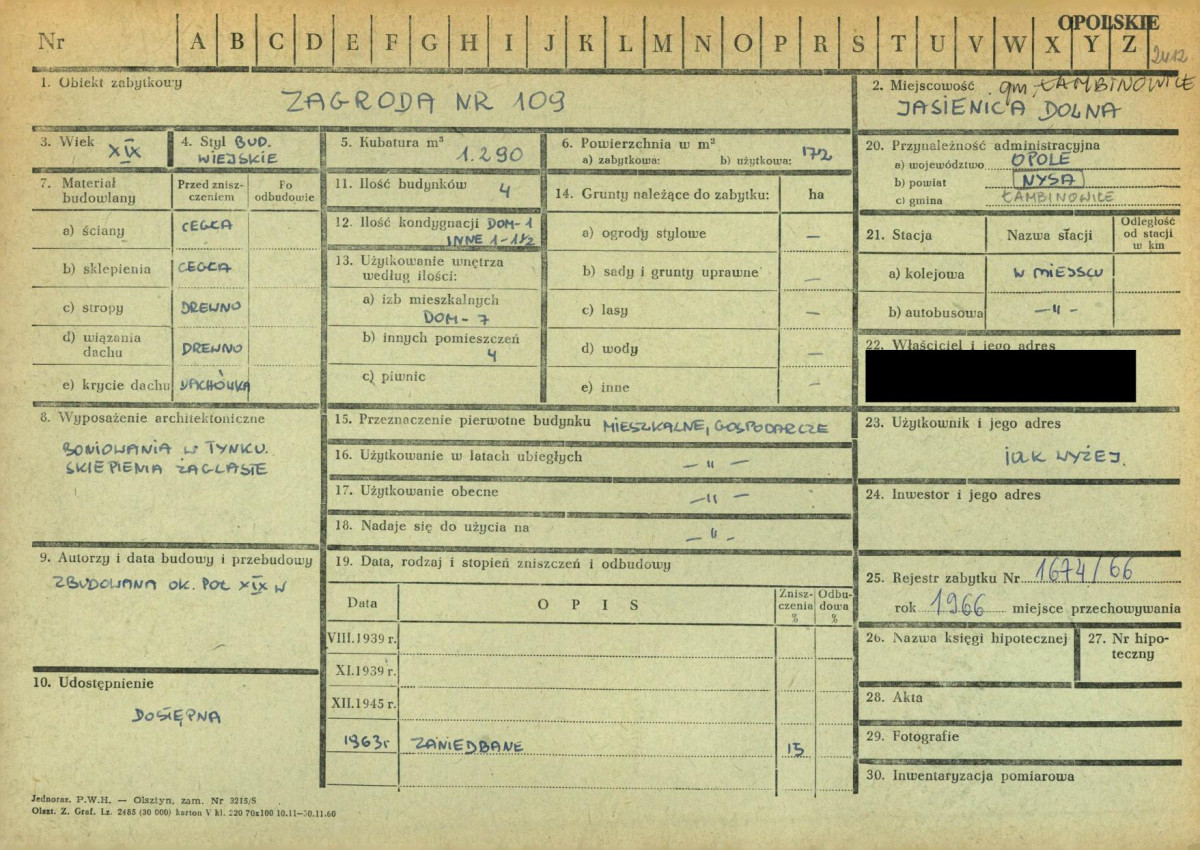 OPOLSKIE
Nr A B C D E F G H I J K L M N O P R S T U V W X Y Z
2412
1. Obiekt zabytkowy
ZAGRODA NR 109
2. Miejscowość gm. ŁAMBINOWICE
JASIENICA DOLNA
3. Wiek
XIX
4. Styl BUD.
WIEJSKIE
5. Kubatura m³
1.290
6. Powierzchnia w m²
a) zabytkowa: b) użytkowa: 172
7. Materiał budowlany
Przed zniszczeniem
Po odbudowie
a) ściany CEGŁA
b) sklepienia CEGŁA
c) stropy DREWNO
d) wiązania dachu DREWNO
e) krycie dachu DACHÓWKA
8. Wyposażenie architektoniczne
BONIOWANIA W TYNKU.
SKLEPIENIA ŻAGLASTE
9. Autorzy i data budowy i przebudowy
ZBUDOWANA OK. POŁ XIX W
10. Udostępnienie
DOSTĘPNA
11. Ilość budynków 4
12. Ilość kondygnacji DOM-1
INNE 1-1 1/2
13. Użytkowanie wnętrza
według ilości:
a) izb mieszkalnych
DOM-7
b) innych pomieszczeń
4
c) piwnic
14. Grunty należące do zabytku: ha
a) ogrody stylowe —
b) sady i grunty uprawne —
c) lasy —
d) wody —
e) inne —
15. Przeznaczenie pierwotne budynku MIESZKALNE, GOSPODARCZE
16. Użytkowanie w latach ubiegłych — " —
17. Użytkowanie obecne — " —
18. Nadaje się do użycia na — " —
19. Data, rodzaj i stopień zniszczeń i odbudowy
Data OPIS Zniszczenia % Odbudowa %
VIII.1939 r.
XI.1939 r.
XII.1945 r.
1963r ZANIEDBANE 15
20. Przynależność administracyjna
a) województwo OPOLE
b) powiat NYSA
c) gmina ŁAMBINOWICE
21. Stacja Nazwa stacji Odległość od stacji w km
a) kolejowa W MIEJSCU
b) autobusowa — " —
22. Właściciel i jego adres
23. Użytkownik i jego adres
JAK WYŻEJ.
24. Inwestor i jego adres
25. Rejestr zabytku Nr 1674/66
rok 1966 miejsce przechowywania
26. Nazwa księgi hipotecznej
27. Nr hipoteczny
28. Akta
29. Fotografie
30. Inwentaryzacja pomiarowa
Jednoraz. P.W.H. — Olsztyn, zam. Nr 3215/S
Olszt. Z. Graf. Lz. 2485 (30 000) karton V kl. 220 70x100 10.11—30.11.60